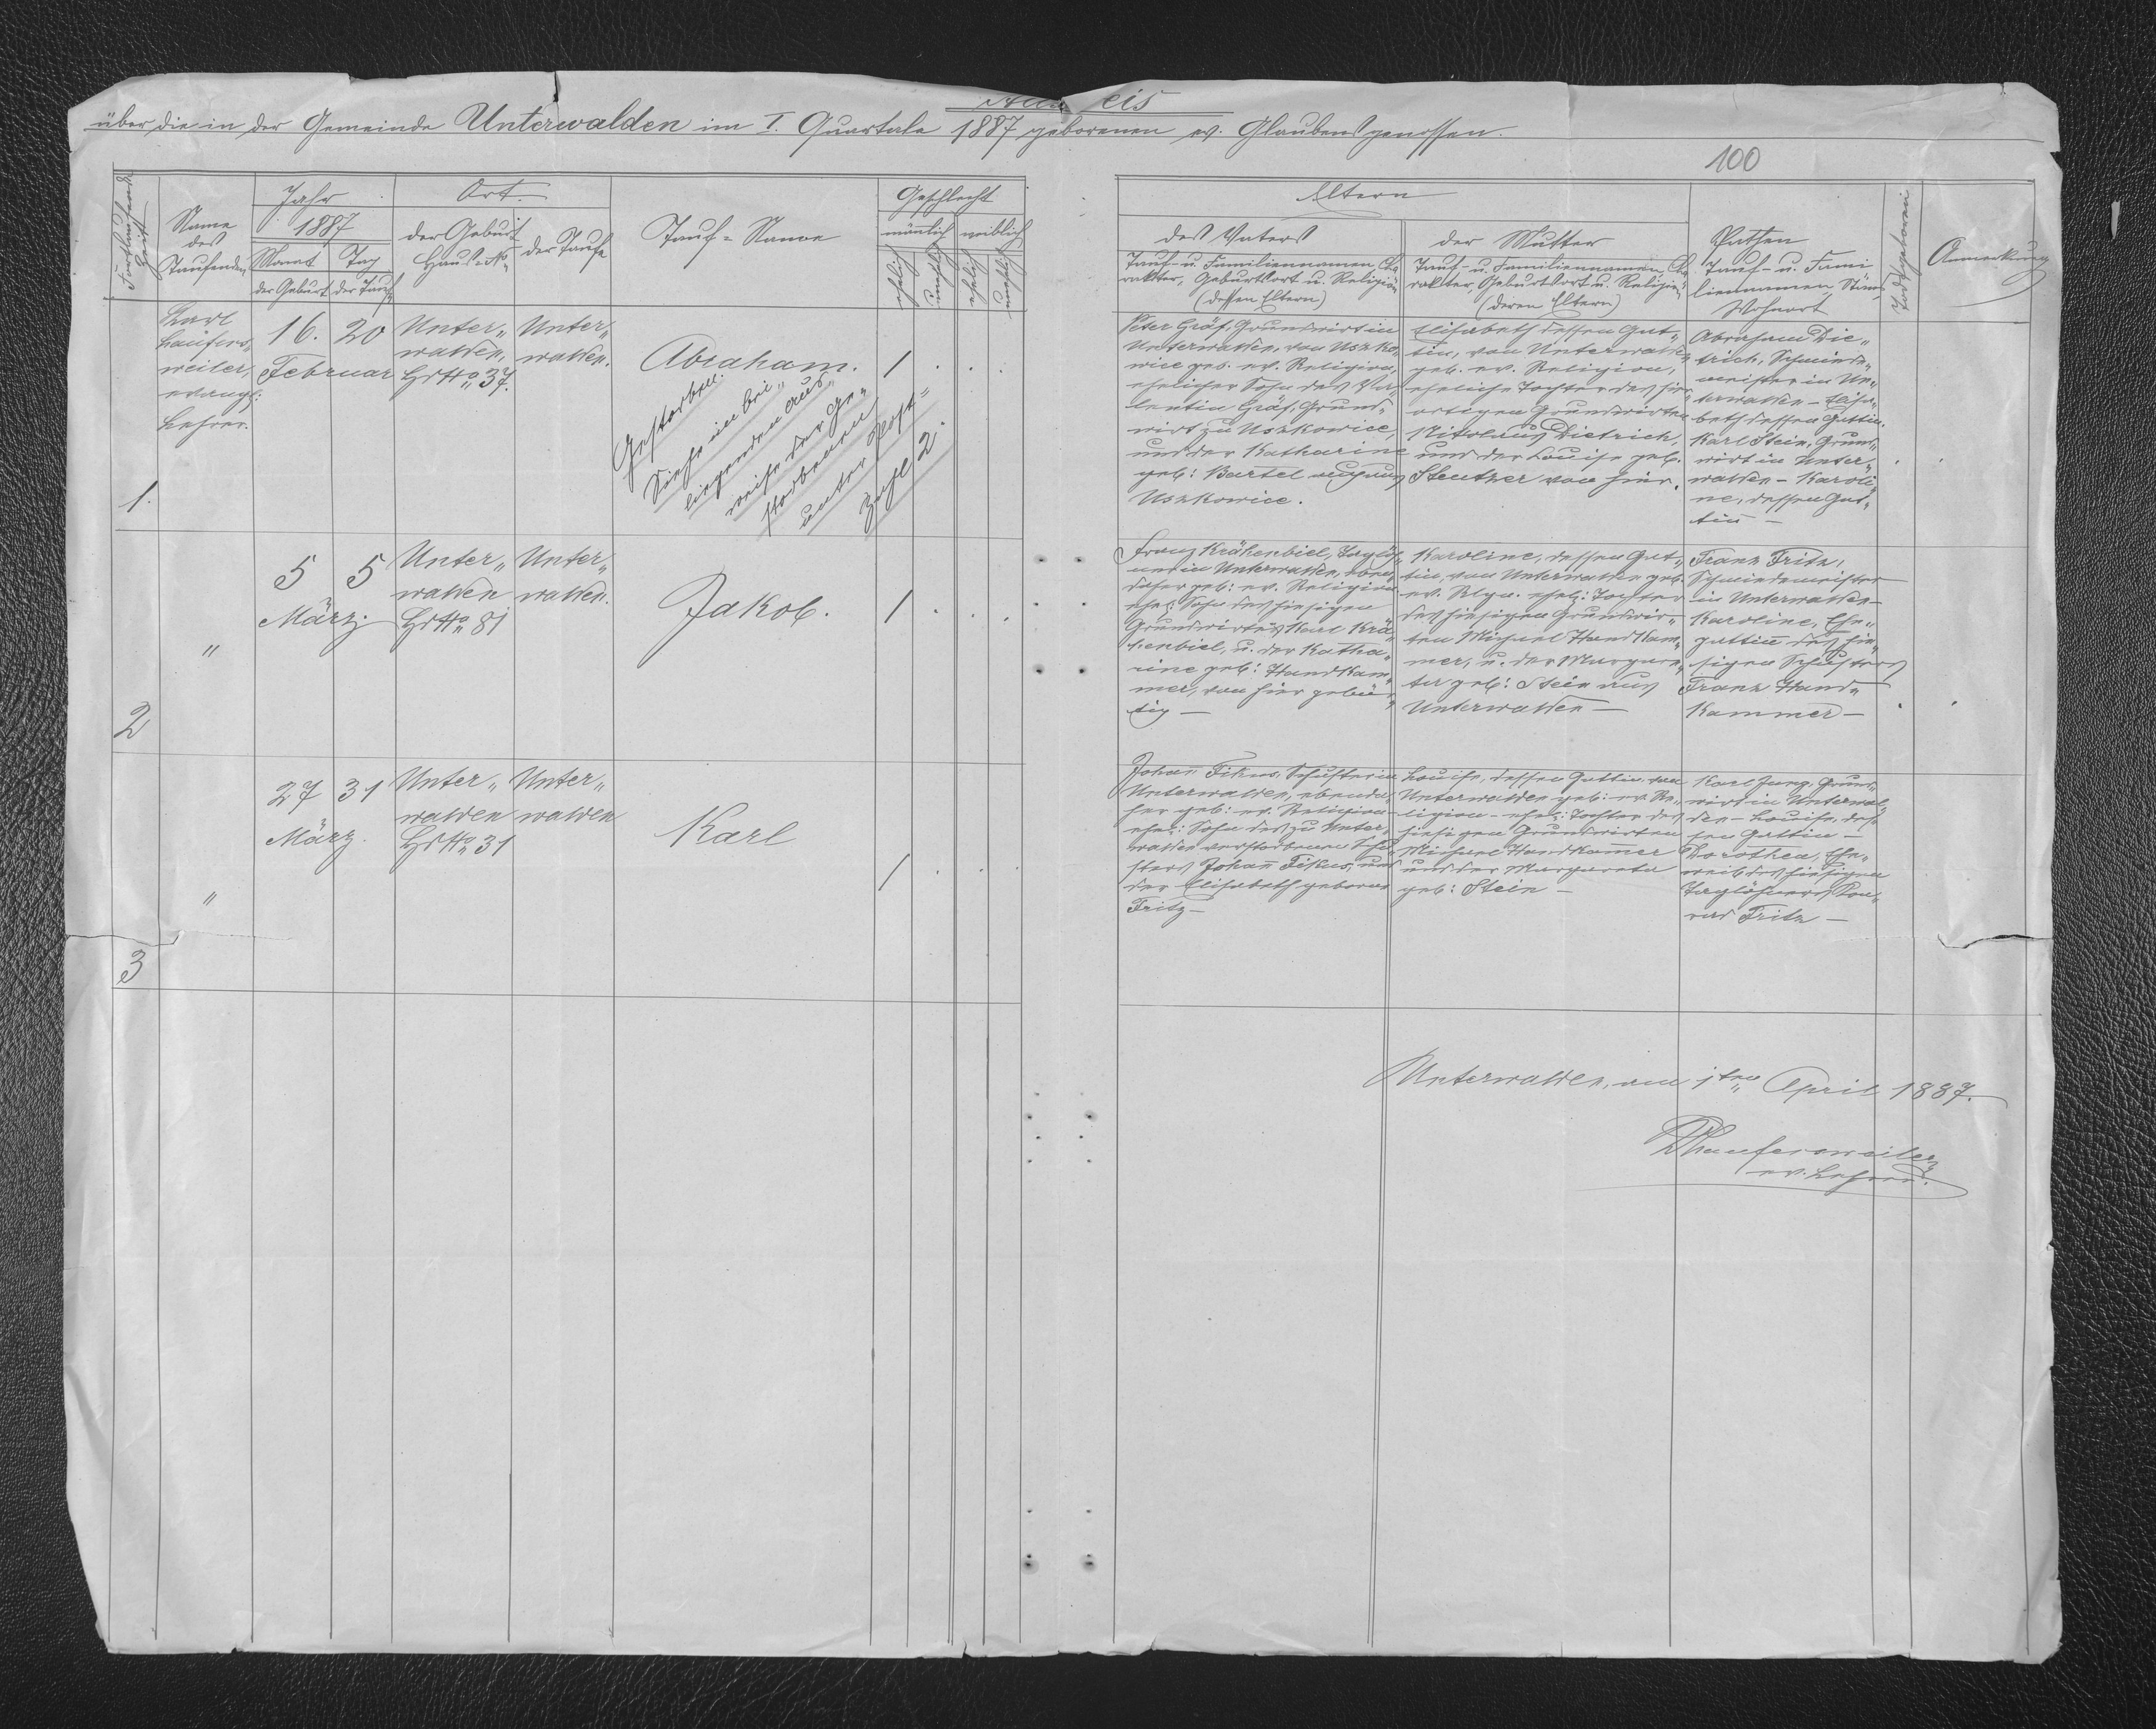 Ausweis
über die in der Gemeinde Unterwalden im I. Quartale 1887 geborenen ev. Glaubensgenossen.
100
Fortlaufende Zeit
Name
des
Taufenden
Jahr
1887
Monat Tag
der Geburt der Taufe
Ort.
der Geburt
Haus-No
der Taufe
Tauf-Name
Geschlecht
mänlich weiblich
ehelich unehlich ehelich unehlich
Eltern
des Vaters
Tauf- u. Familiennamen Cha
rakter, Geburtsort u. Religion
(dessen Eltern)
der Mutter
Tauf- u. Familiennamen, Cha
rakter, Geburtsort u. Religion
(deren Eltern)
Pathen
Tauf- u. Fami
liennamen, Stand
Wohnort
Todtgeboren
Anmerkung
1.
Karl
Laufers„
weiler,
evangl:
Lehrer.
16. 20
Februar
Unter„
walden,
Hs No 37.
Unter„
walden.
Abraham.
Gestorben.
Siehe im bei„
liegenden Aus„
weise der Ge„
storbenen
unter Post-
Zahl 2.
1 . . .
Peter Gräf, Grundwirt in
Unterwalden, von Uszko„
wice geb. ev. Religion,
ehelicher Sohn des Va„
lentin Gräf, Grund„
wirt zu Uszkowice,
und der Katharine
geb: Bartel aus
Uszkowice.
Elisabeth dessen Gat„
tin, von Unterwalden
geb. ev. Religion,
eheliche Tochter des hier„
ortigen Grundwirten
Nikolaus Dietrich,
und der Louise geb.
Steutzer von hier.
Abraham Die„
trich, Schmiede„
meister in Un„
terwalden – Elisa„
beth dessen Gattin.
Karl Stein, Grund„
wirt in Unter„
walden – Karoli„
ne, dessen Gat„
tin –
2
"
5 5
März.
Unter„
walden
Hs No 81
Unter„
walden.
Jakob.
1 . . .
Franz Krähenbiel, Taglöh„
ner in Unterwalden, eben„
daher geb: ev. Religion
ehe: Sohn des hiesigen
Grundwirtes Karl Krä„
henbiel, u. der Katha„
rine geb: Handkam„
mer, von hier gebür„
tig –
Karoline, dessen Gat„
tin, von Unterwalden geb.
ev. Rlgn. ehel: Tochter
des hiesigen Grundwir„
ten Michael Handkam„
mer, u. der Margare„
ta geb: Stein aus
Unterwalden –
Franz Fritz,
Schmiedemeister
in Unterwalden –
Karoline, Ehe„
gattin des hie„
sigen Schusters
Franz Hand„
kammer –
3
"
27 31
März.
Unter„
walden
Hs No 31
Unter„
walden
Karl
1 . . .
Johan̄ Fikus, Schuster in
Unterwalden, ebenda„
her geb: ev. Religion –
ehe: Sohn des zu Unter„
walden verstorbenen Schu„
sters Johan̄ Fikus, und
der Elisabeth geborne
Fritz –
Louise, dessen Gattin von
Unterwalden geb: ev. Re„
ligion – ehe: Tochter des
hiesigen Grundwirten
Michael Handkam̄er
und der Margareta
geb: Stein –
Karl Jung, Grund„
wirt in Unterwal„
den – Louise, des„
sen Gattin –
Dorothea, Ehe„
weib des hiesigen
Taglöhners Kon„
rad Fritz –
Unterwalden, am 1ten April 1887.
KLaufersweiler
ev. Lehrer.